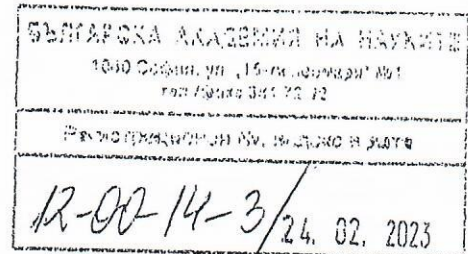 БЪЛГАРСКА АКАДЕМИЯ НА НАУКИТЕ
1040 София, ул. „15-ти ноември" №1
тел
Регистрационен №, индекс и дата
12-00-14-3/24. 02. 2023